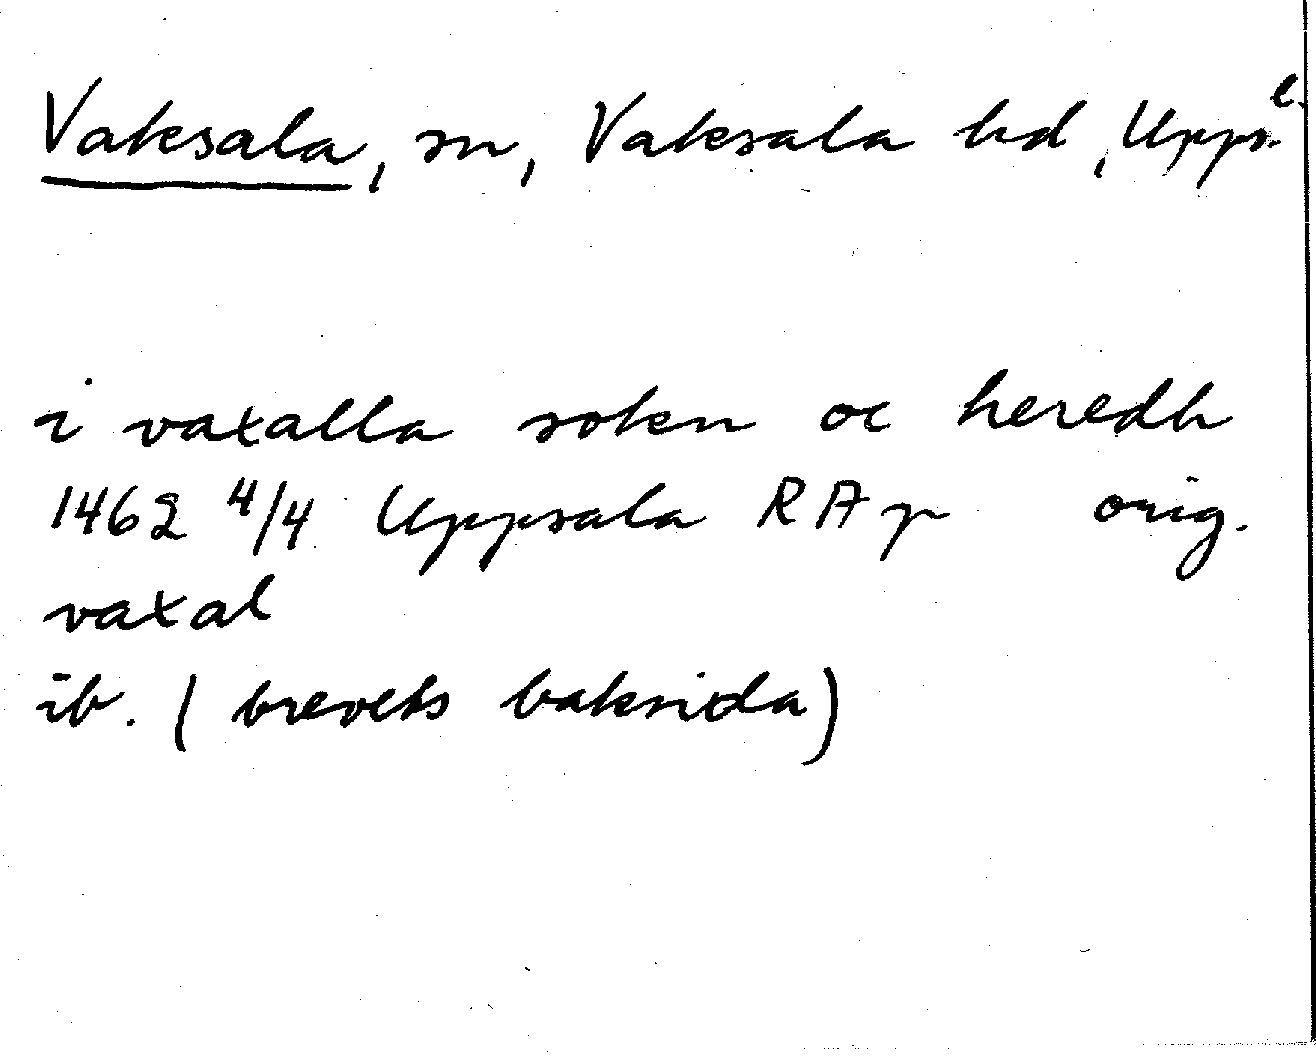 Vaksala, sn, Vaksala hd, Upps. l.
i vaxalla soken oc heredh
1462 4/4 Uppsala RAp orig.
vaxal
ib. (brevets baksida)